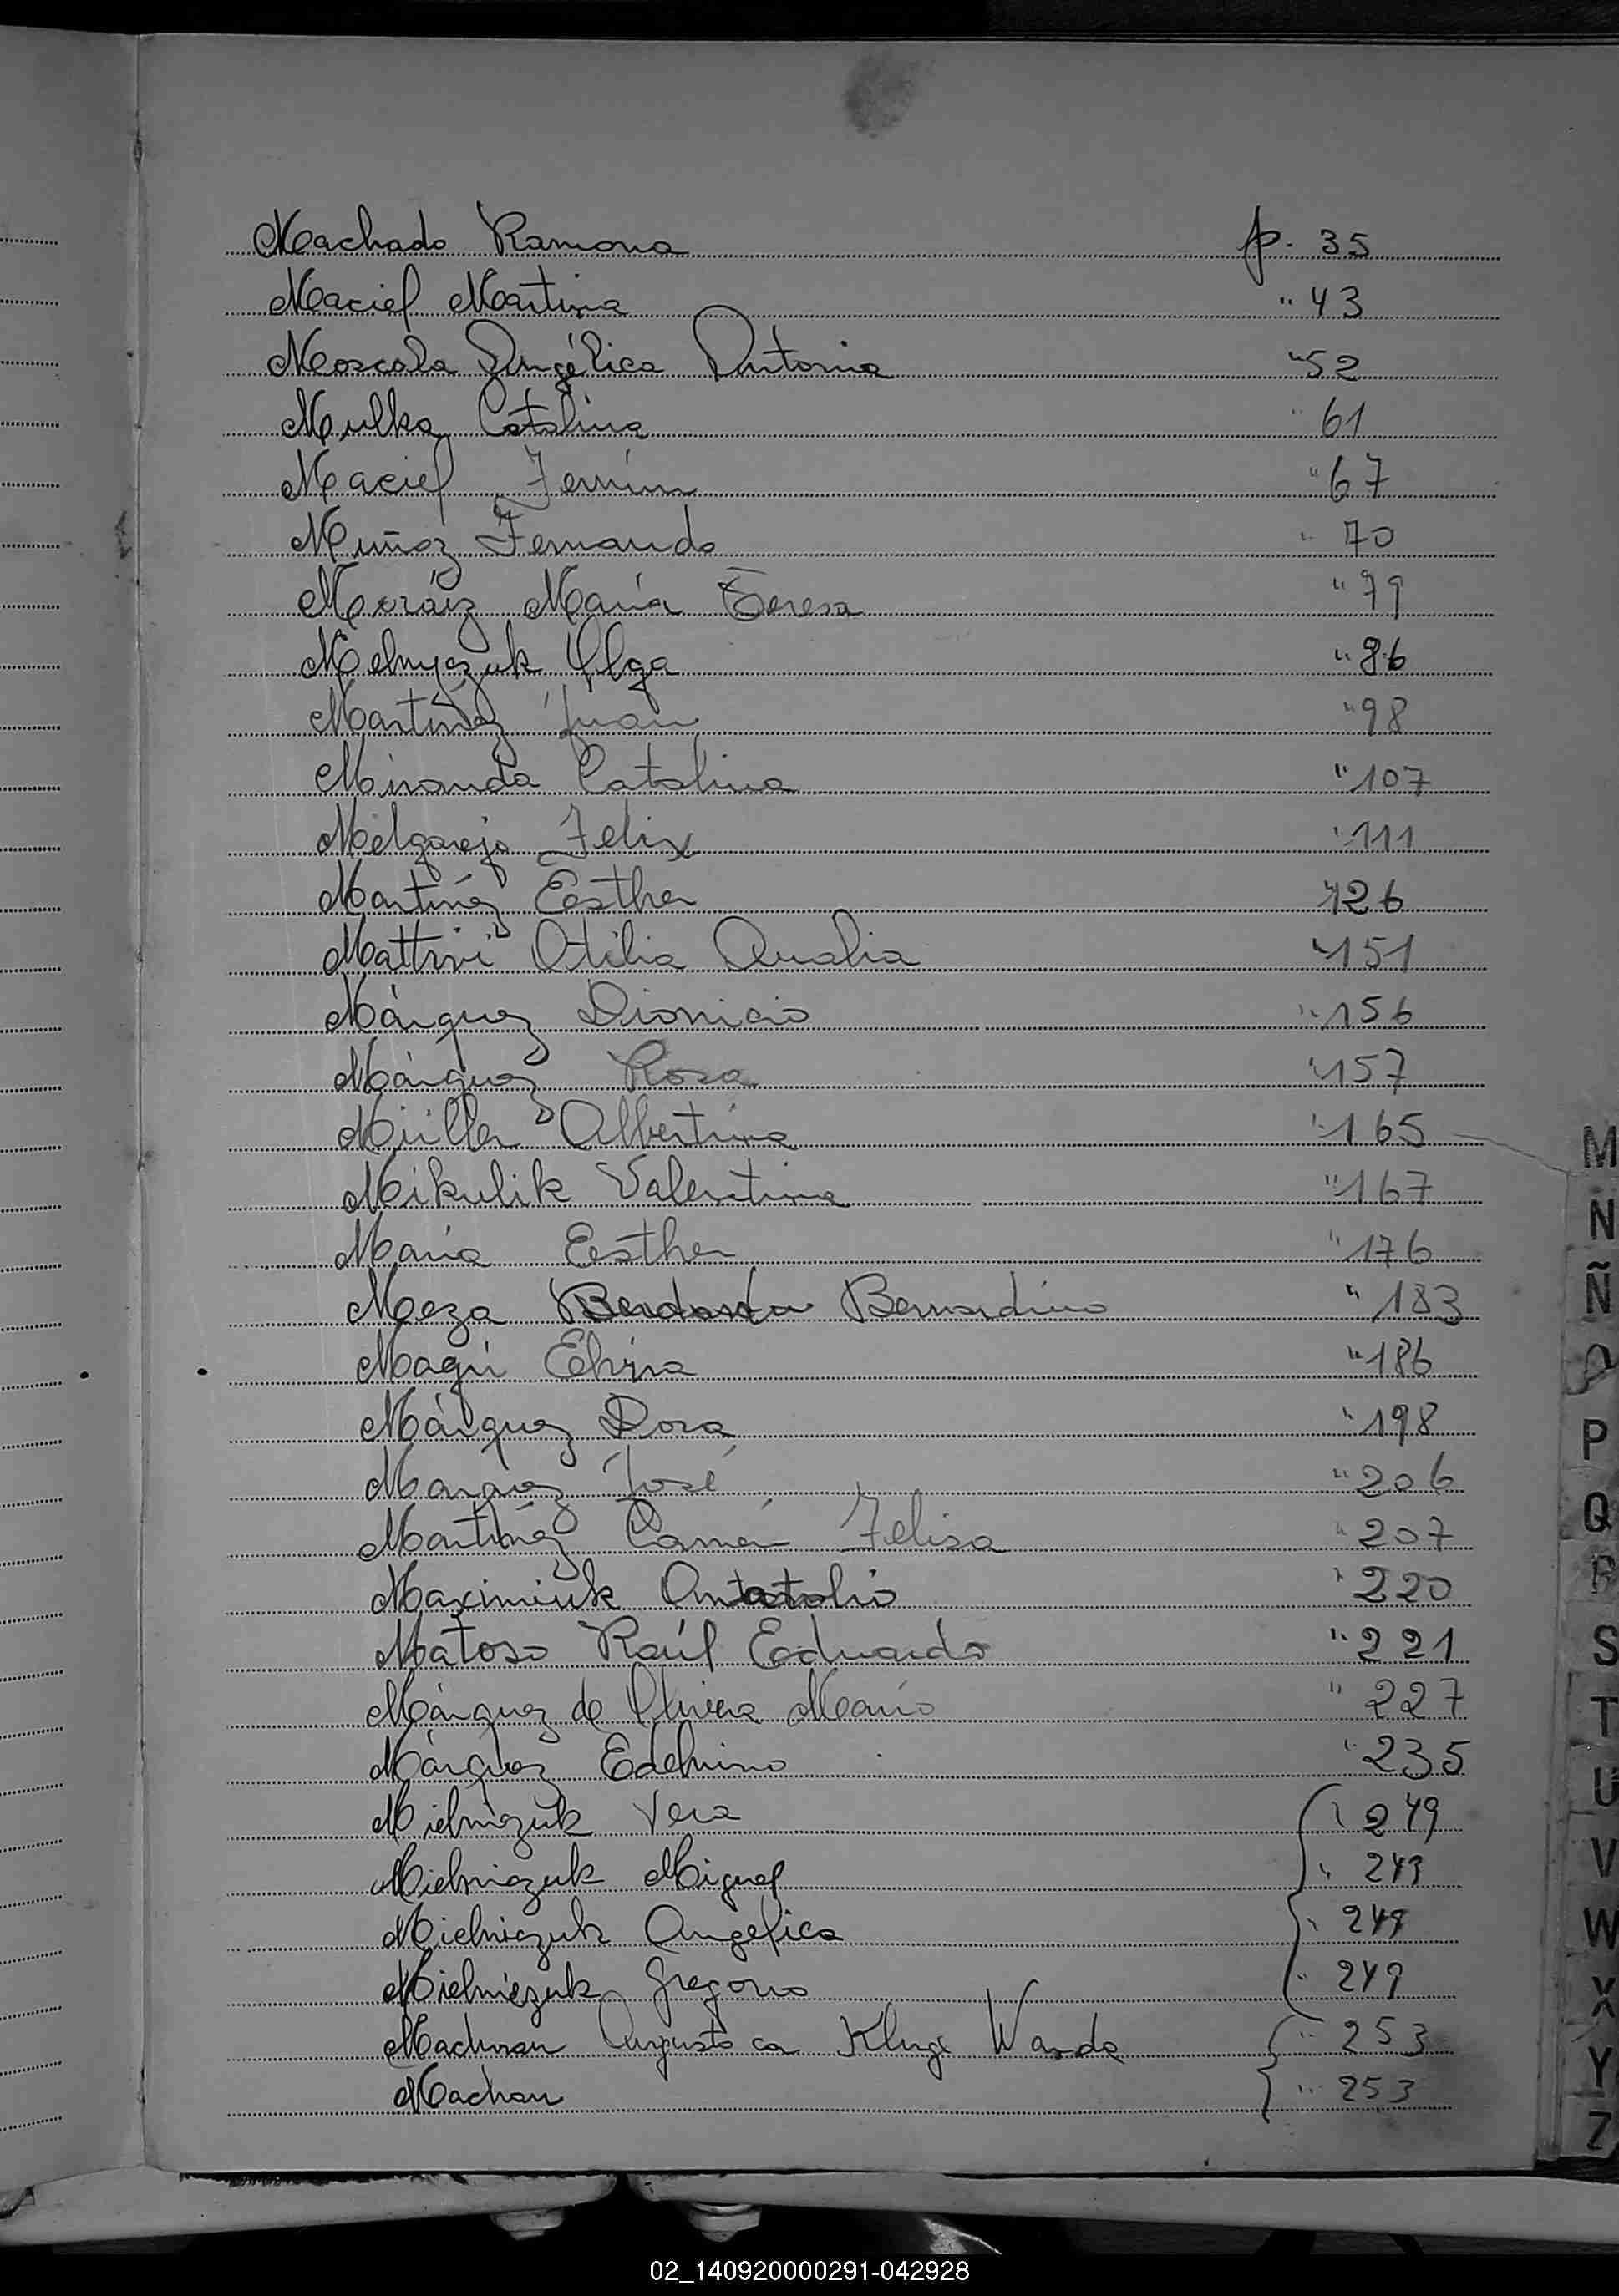 Machado Ramona p. 35
Maciel Martina " 43
Moscala Angélica Antonia " 52
Mulka Catalina " 61
Maciel Fermín " 67
Muñoz Fernando " 70
María Teresa " 79
Melnyczuk Olga " 86
Martínez Juan " 98
Miranda Catalina " 107
Melgarejo Felix " 111
Martínez Esther 126
Mattivi Otilia Analia " 151
Márquez Dionicio " 156
Márquez Rosa " 157
Müller Albertina " 165
Mikulik Valentina " 167
María Esther " 176
Meza Bernardino " 183
Elvira " 186
Márquez Dora " 198
Marquez José " 206
Martínez Felisa " 207
Maximiuk Anatolio " 220
Matoso Raúl Eduardo " 221
Márquez de Olivera Mario " 227
Márquez Edelmiro " 235
Mielniczuk Vera " 249
Mielniczuk Miguel " 249
Mielniczuk Angelica " 249
Mielniczuk Gregorio " 249
Augusto Kluge Wanda " 253
Machon " 253
M
N
Ñ
O
P
Q
R
S
T
U
V
W
X
Y
Z
02_140920000291-042928